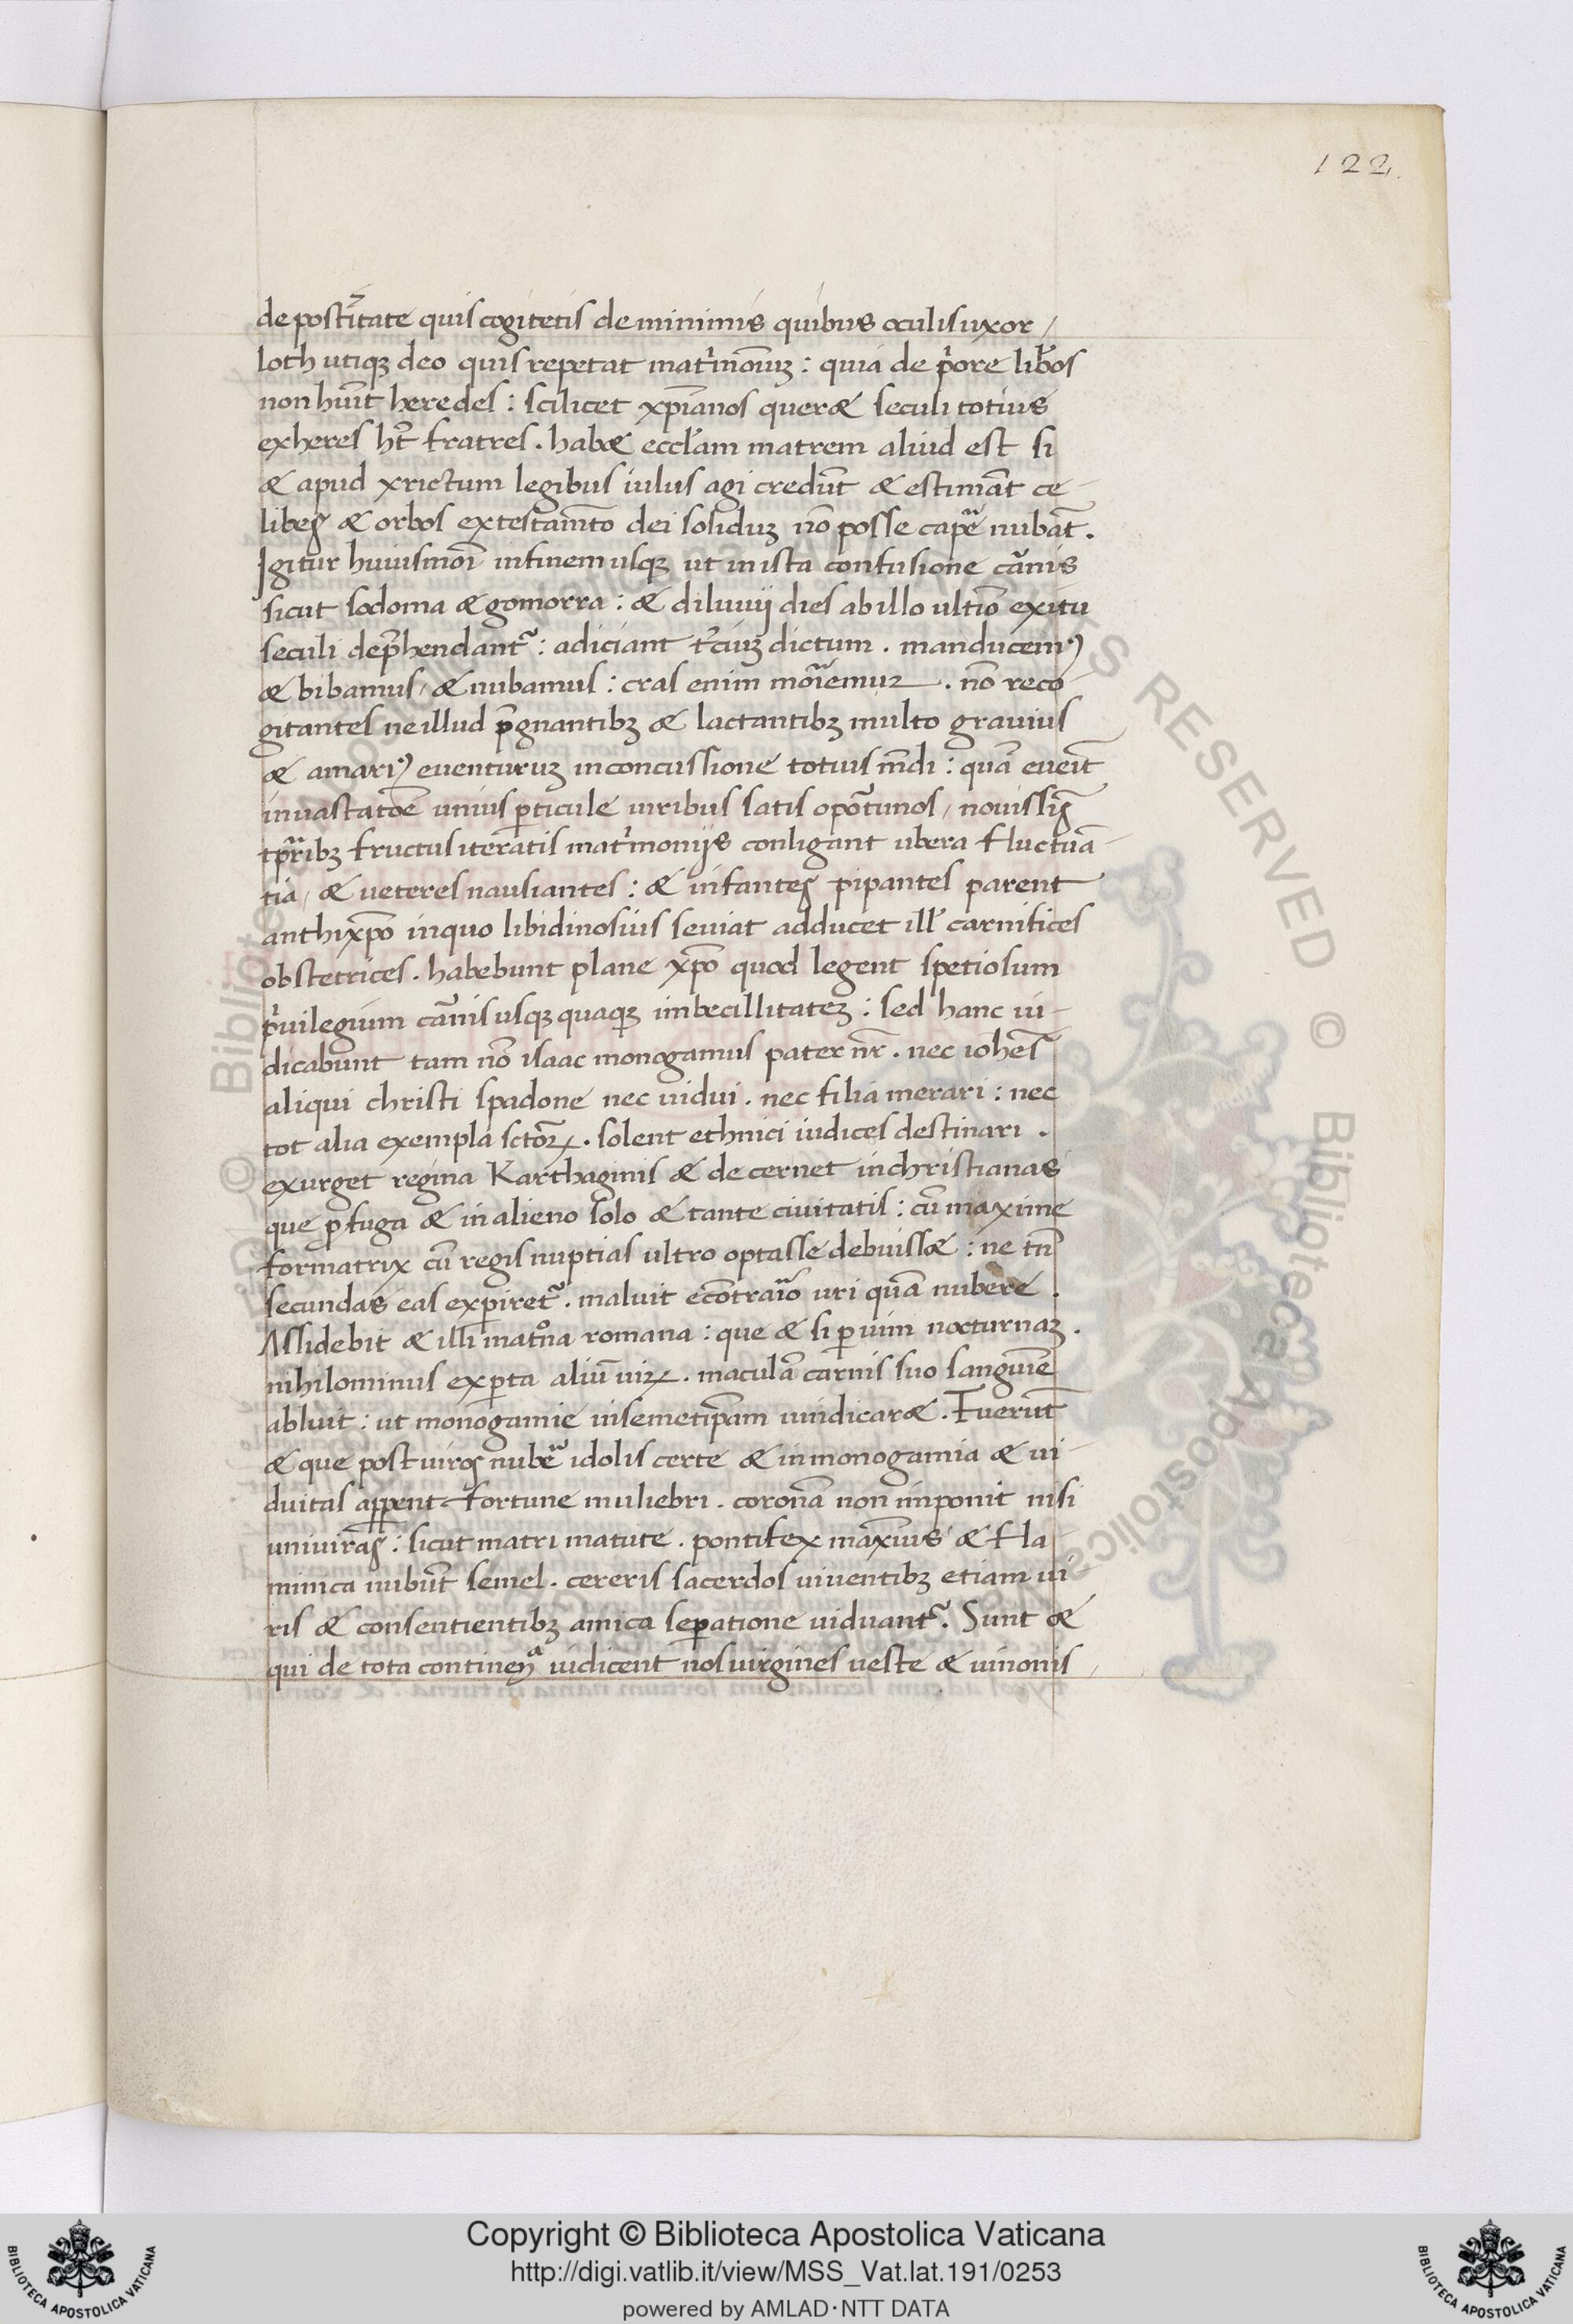 122
de post̄itate quis cogitetis de minimis quibus oculis uxor /
loth utiqꝫ deo quis repetat matͥmoniuꝫ : quia de pͥore lib̄os
non hūit heredes : scilicet xp̄ianos queræ seculi totius
exheres hī̄t fratres . habæ eccl̄am matrem aliud est si
& apud xrictum legibus iulus agi credūt & estimāt ce-
libes & orbos ex testam̄to dei soliduꝫ nō posse cap̄e nubāt .
Igitur huiusmōi in finem usqꝫ ut in ista confusione cānis
sicut sodoma & gomorra : & diluuij dies ab illo ultīo exitu
seculi dep̄hendant᷑ : adiciant t̄ciuꝫ dictum . manducemꝰ
& bibamus / & nubamus : cras enim mōiemur . nō reco-
gitantes ne illud p̄gnantibꝫ & lactantibꝫ multo grauius
& amariꝰ euenturuꝫ in concussione totius mn̄di : quā eueīt
in uastatōe unius ꝑticule uiribus satis opōtunos / nouissīs
tp̄ribꝫ fructus iteratis matͥmonijs conligant ubera fluctuā-
tia / & ueteres nausiantes : & infantes pipantes parent
anthixp̄o in quo libidinosius seuiat adducet ill̄ carnifices
obstetrices . habebunt plane xp̄o quod legent spetiosum
pͥuilegium cānis usqꝫ quaqꝫ imbecillitateꝫ : sed hanc iu-
dicabunt tam nō isaac monogamus pater nr̄ . nec ioh̄es
aliqui christi spadone nec uidui . nec filia merari : nec
tot alia exempla sctōꝝ . solent ethnici iudices destinari .
exurget regina Karthaginis & decernet in christianas
que ꝓfuga & in alieno solo & tante ciuitatis : cū maxime
formatrix cū regis nuptias ultro optasse debuissæ : ne tn̄
secundas eas expiret᷑ . maluit econtrāio uri quā nubere .
Assidebit & illi matͦna romana : que & si ꝑ uim nocturnaꝫ .
nihilominus exꝑta aliū uiꝝ . maculā carnis suo sanguīe
abluit : ut monogamie in semetip̄am uindicaræ . Fuerūt
& que post uiros nub̄e idolis certe & in monogamia & ui-
duitas apꝑent fortune muliebri . coronā non imponit nisi
uniuirās : sicut matri matute . pontifex māximus & fla
minica nubūt semel . cereris sacerdos uiuentibꝫ etiam ui-
ris & consentientibꝫ amica seꝑatione uiduant᷑ . Sunt &
qui de tota continenͣ iudicent nos uirgines ueste & iunonis /
© Biblioteca Apostolica Vaticana
RIGHTS RESERVED © Biblioteca Apostolica
Copyright © Biblioteca Apostolica Vaticana
http://digi.vatlib.it/view/MSS_Vat.lat.191/0253
powered by AMLAD·NTT DATA
BIBLIOTECA APOSTOLICA VATICANA
BIBLIOTECA APOSTOLICA VATICANA